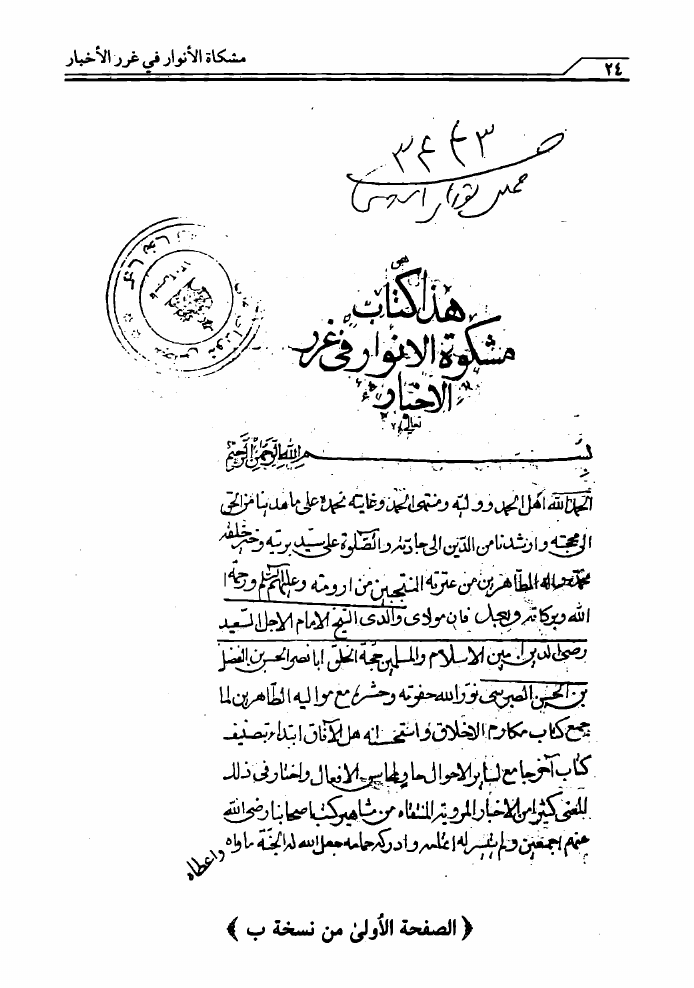 ٢٤
مشكاة الأنوار في غرر الأخبار
٣٤٢٣
هذا كتاب
مشكوة الانوار فى غرر
الاخبار
بسم الله الرحمن الرحيم
الحمد لله اهل الحمد ووليه ومنتهى الحمد وغايته نحمده على ما هدينا من الحق
الى محجته وارشدنا من الدين الى جادته والصلوة على سيد بريته وخير خلقه
محمد واله الطاهرين من عترته المنتجبين من ارومته وعليهم السلم ورحمة ا
الله وبركاته وبعد فان مولاى والدى الشيخ الامام الاجل السعيد
رضى الدين امين الاسلام والمسلمين حجة الخلق ابا نصر الحسن بن الفضل
بن الحسن الطبرسى نور الله حفرته وحشره مع مواليه الطاهرين لما
جمع كتاب مكارم الاخلاق واستحسنه اهل الآفاق ابتداء بتصنيف
كتاب آخر جامع لساير الاحوال حاو لمحاسن الافعال واختار فى ذلك
المعنى كثيرا من الاخبار المروية المنتقاه من مشاهير كتب اصحابنا رضى الله
عنهم اجمعين ولم يتيسر له اتمامه وادركه حمامه جعل الله له الجنة ماواه
واعطاه
﴿ الصفحة الأولىٰ من نسخة ب ﴾